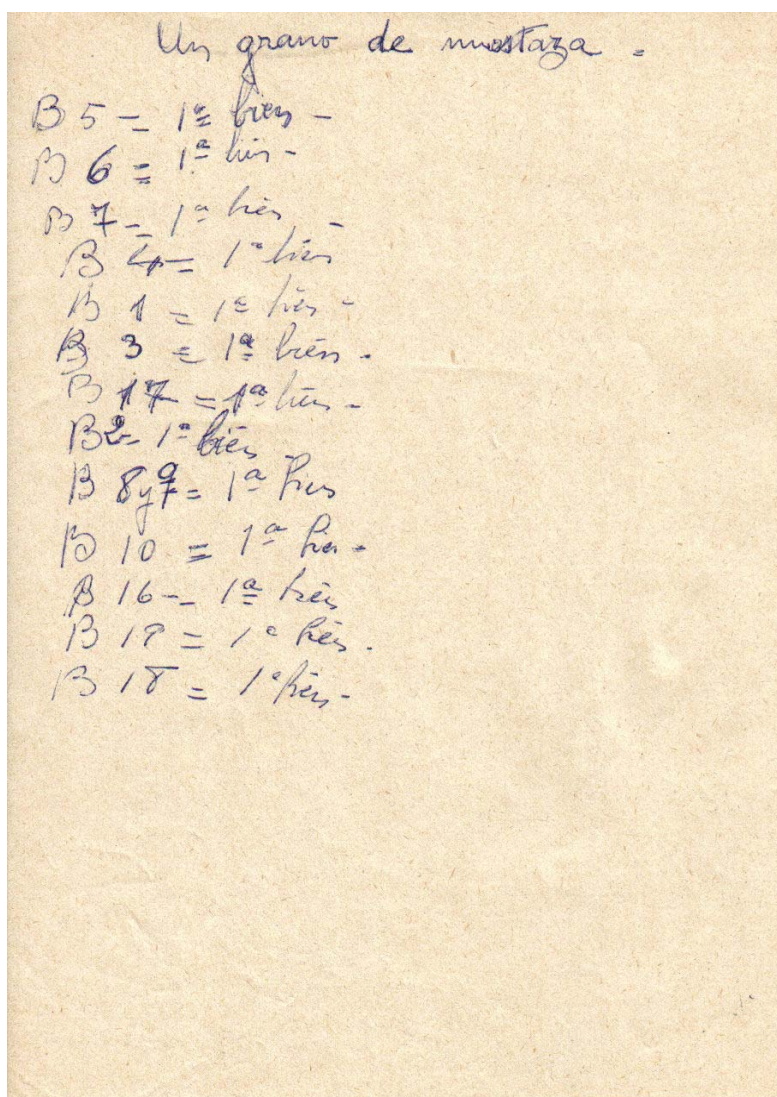 Un grano de mostaza -
B 5 = 1ª bien -
B 6 = 1ª bien -
B 7 = 1ª bien -
B 4 = 1ª bien
B 1 = 1ª bien -
B 3 = 1ª bien -
B 17 = 1ª bien -
B 2 - 1ª bien -
B 8 y 9 = 1ª bien
B 10 = 1ª bien -
B 16 - 1ª bien
B 19 = 1ª bien -
B 18 = 1ª bien -